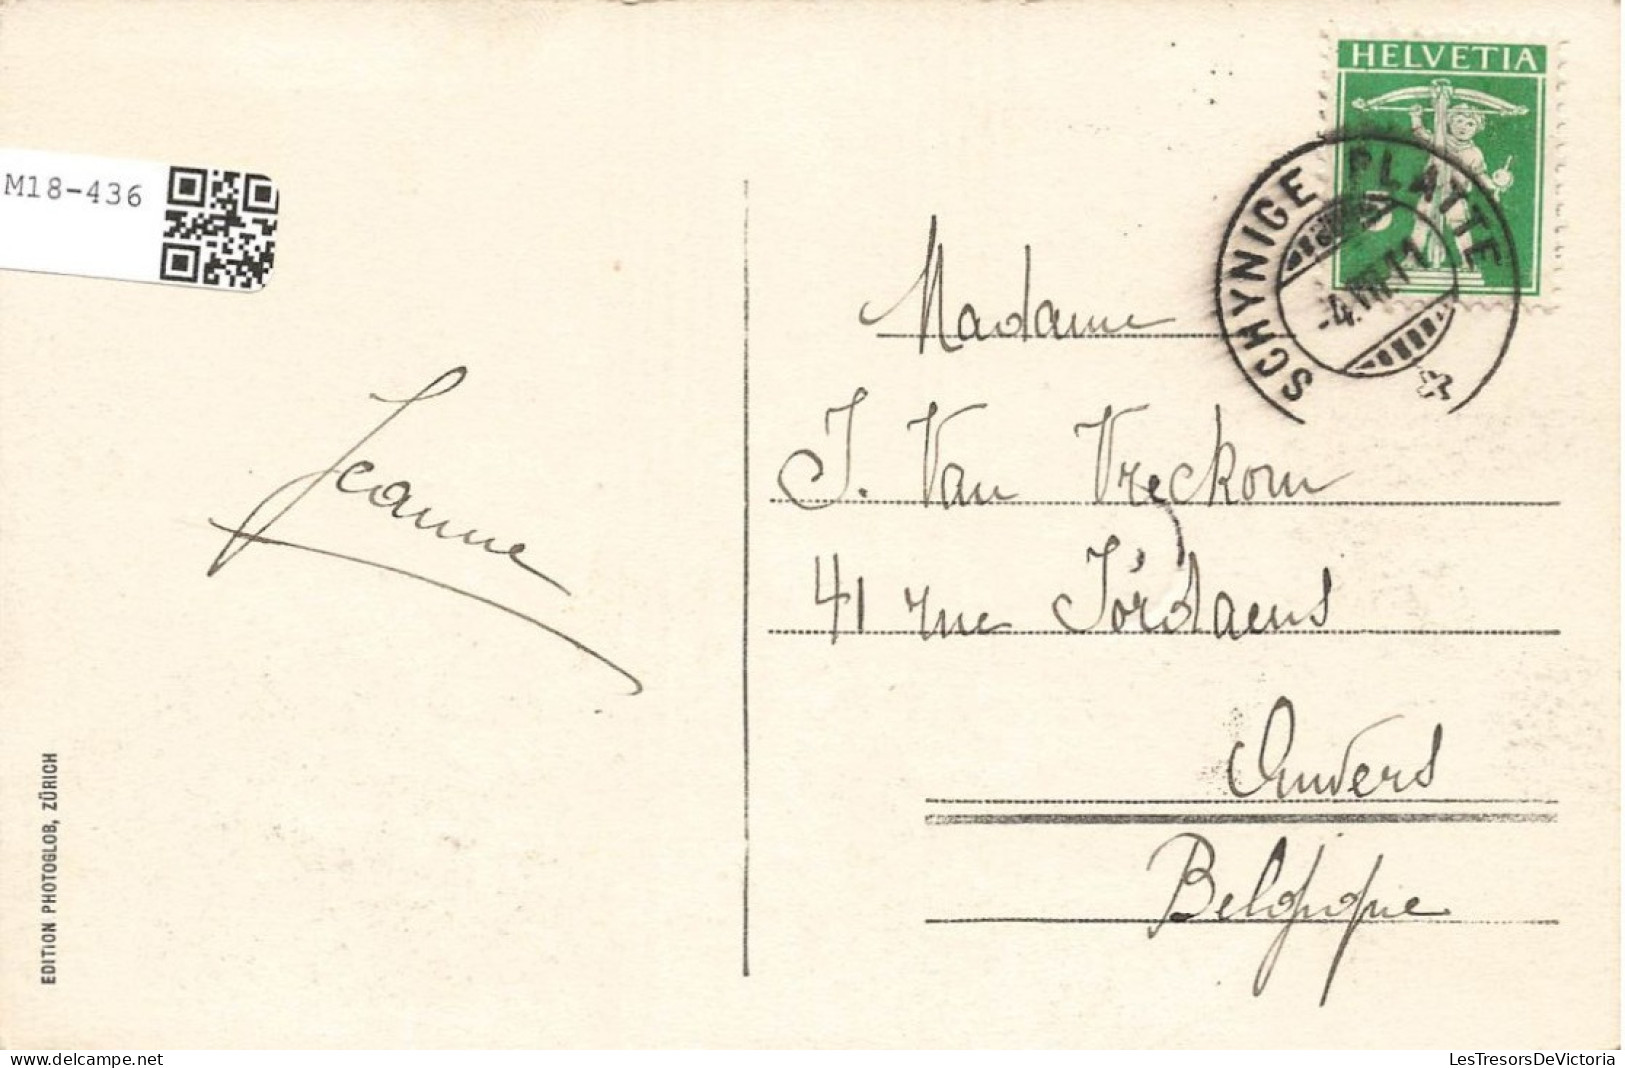 HELVETIA
5
SCHYNIGE PLATTE
-4.VIII.11
M18-436
Madame
J. Van Vreckom
41 rue Jordaens
Anvers
Belgique
Jeanne
EDITION PHOTOGLOB, ZÜRICH
delcampe.net
LesTresorsDeVictoria